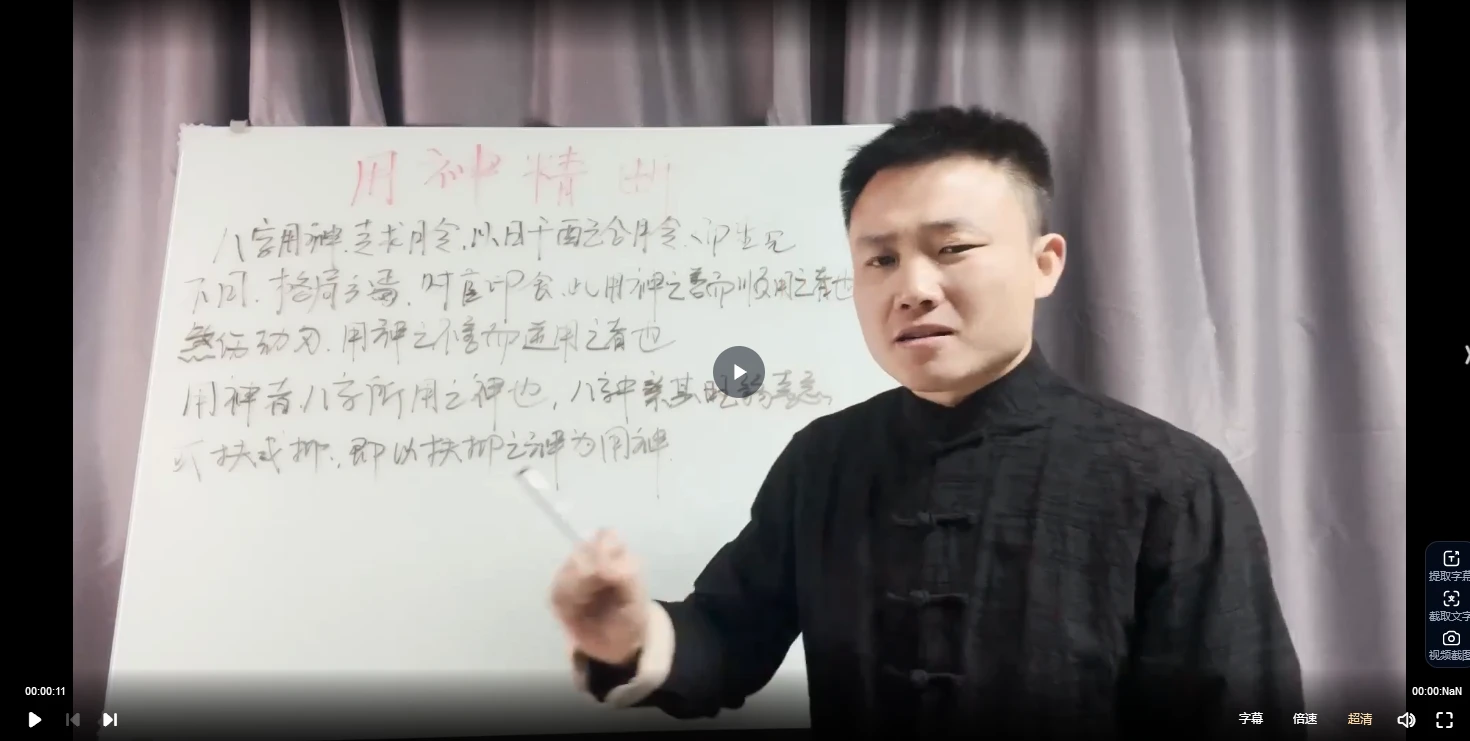 用神精断
八字用神,专求月令,以日干配之令月令,而生克
不同,格局分焉,财官印食,此用神之善而顺用之者也
煞伤劫刃,用神之不善而逆用之者也
用神者,八字所用之神也,八字中察其旺弱喜忌
或扶或抑,即以扶抑之神为用神.
提取字幕
截取文字
视频截图
00:00:11
00:00:NaN
字幕 倍速 超清